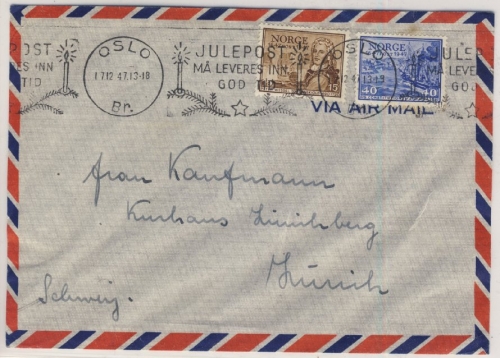 POST
ES INN
TID
OSLO
17.12.47.13-18
Br.
JULEPOST
MÅ LEVERES INN
GOD
NORGE
15
OSLO
12 47.13
NORGE
40 40
ULEP
MÅ LEVE
GO
VIA AIR MAIL
Frau Kaufmann
Kurhaus Zürichberg
Zürich
Schweiz.